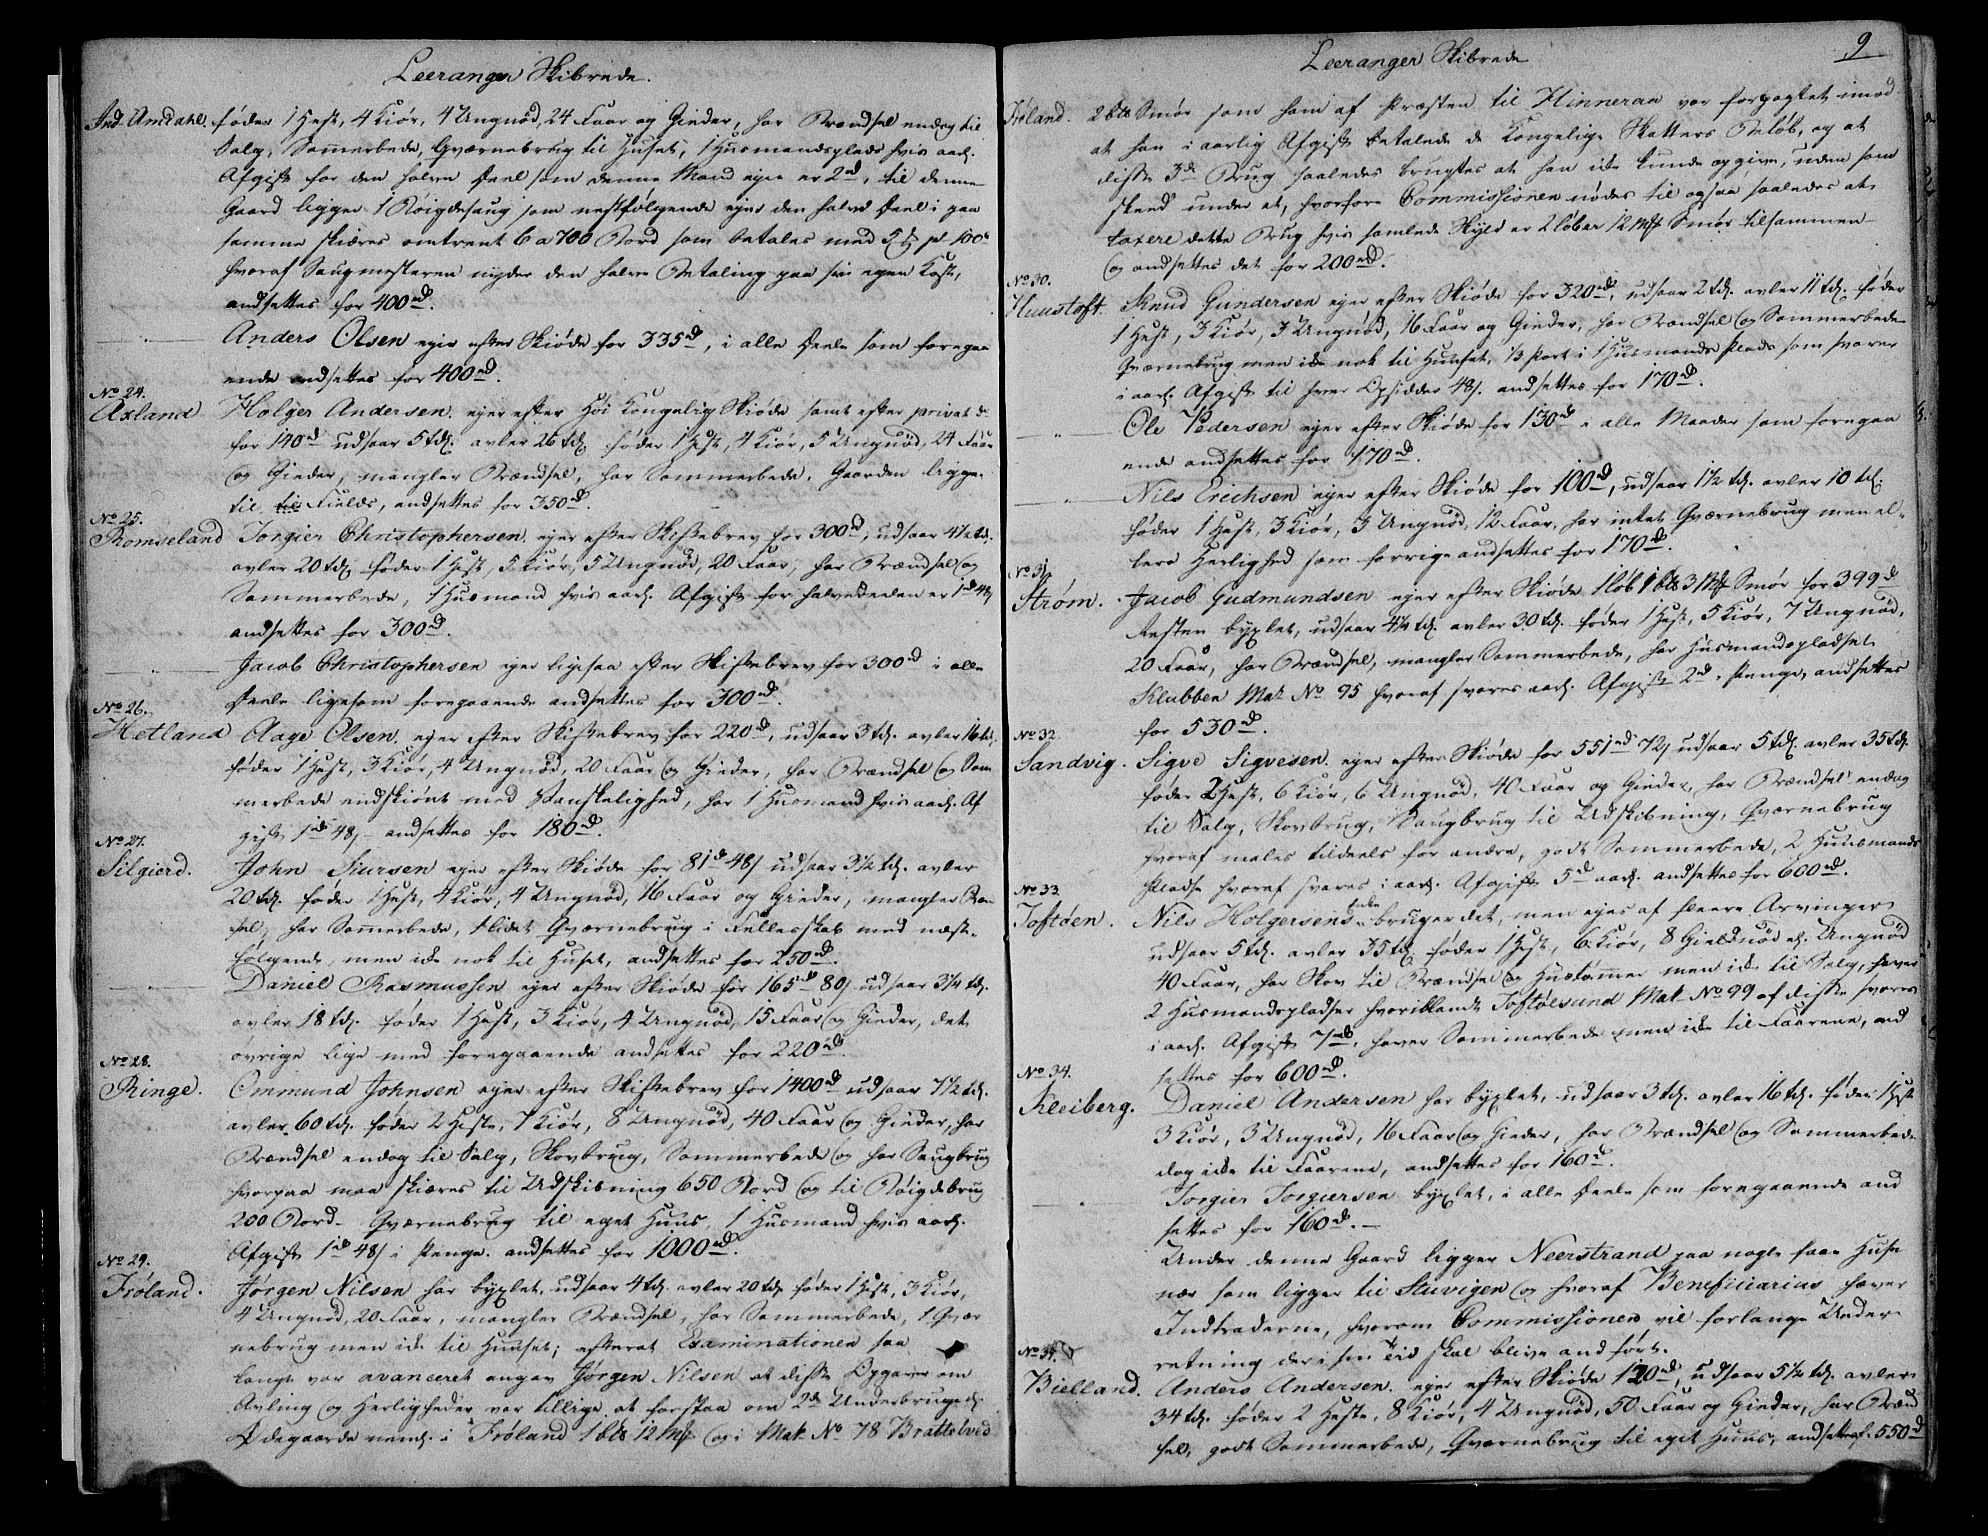 Leeranger Skibrede.
Ind-Amdahl. føder 1 Hest, 4 Kiør, 4 Ungnød, 24 Faar og Gieder, har Brændsel endog til
Salg, Sommerbede, Qværnebrug til Huset, 1 Huusmandsplads hvis aarl.
Afgift for den halve Deel som denne Mand ejer er 2rd, til denne
Gaard ligger 1 Bøigdesaug som nestfølgende ejer den halve Deel i paa
samme skiæres omtrent 6 a 700 Bord som betales med 5 ß pr 100de
hvoraf Saugmesteren nyder den halve Betaling paa sin egen Kost,
andsettes for 400rd.
Anders Olsen ejer efter Skiøde for 335rd, i alle Deele som foregaa
ende andsettes for 400rd.
No 24.
Axland Holger Andersen ejer efter Høi Kongelig Skiøde samt efter privat do
for 140rd udsaar 5 tdr. avler 26 tdr. føder 1 Hest, 4 Kiør, 5 Ungnød, 24 Faar
og Gieder, mangler Brændsel, har Sommerbede, Gaarden ligger
til til Fields, andsettes for 350rd.
No 25.
Romseland Torgier Christophersen ejer efter Skiftebrev for 300rd, udsaar 4½ tdr.
avler 20 tdr. føder 1 Hest, 5 Kiør, 5 Ungnød, 20 Faar, har Brændsel og
Sommerbede, 1 Huusmand hvis aarl. Afgift for halvedeelen er 1rd 48ß
andsettes for 300rd.
Jacob Christophersen ejer ligesaa efter Skiftebrev for 300rd i alle
Deele ligesom foregaaende andsettes for 300rd.
No 26.
Hetland Aage Olsen, ejer efter Skiftebrev for 220rd, udsaar 3 tdr. avler 16 tdr.
føder 1 Hest, 3 Kiør, 4 Ungnød, 20 Faar og Gieder, har Brændsel og Som
merbede endskiønt med Vanskelighed, har 1 Huusmand hvis aarl. Af
gift 1rd 48ß andsettes for 180rd.
No 27.
Silgierd. John Siursen ejer efter Skiøde for 81rd 48ß udsaar 3½ tdr. avler
20 tdr. føder 1 Hest, 4 Kiør, 4 Ungnød, 16 Faar og Gieder, mangler Bræn
sel, har Sommerbede, 1 lidet Qværnebrug i Fellesskab med næst-
følgende, men ikke nok til Huset, andsettes for 250rd.
Daniel Rasmussen ejer efter Skiøde for 165rd 80ß udsaar 3¼ tdr.
avler 18 tdr. føder 1 Hest, 3 Kiør, 4 Ungnød, 15 Faar og Gieder, det
øvrige lige med foregaaende andsettes for 220rd.
No 28.
Ringe. Ommund Johnsen ejer efter Skiftebrev for 1400rd udsaar 7½ tdr.
avler 60 tdr. føder 2 Heste, 7 Kiør, 8 Ungnød, 40 Faar og Gieder, har
Brændsel endog til Salg, Skovbrug, Sommerbede og har Saugbrug
hvorpaa maa skiæres til Udskibning 650 Bord og til Bøigdebrug
200 Bord. Qværnebrug til eget Huus, 1 Huusmand hvis aarl.
Afgift 1rd 48ß i Penge. andsettes for 1000rd.
No 29.
Frøland. Jørgen Nilsen har byxlet, udsaar 4 tdr. avler 20 tdr. føder 1 Hest, 3 Kiør,
4 Ungnød, 20 Faar, mangler Brændsel, har Sommerbede, 1 Qvær
nebrug men ikke til Huuset; efterat Examinationen saa
lange var avanceret angav Jørgen Nilsen at disse Opgaver om
Avling og Herligheder var tillige at forstaa om 2de Underbrugende
Ødegaarde neml. i Frøland 1 bls 12 Mrk og i Mat. No 78 Brattetved
Leeranger Skibrede
9
Frøland. 2 bls Smør som ham af Præsten til Hinneraa var forpagtet imod
at han i aarlig Afgift betalede de Kongelige Skatters Beløb, og at
disse 3de Brug saaledes brugtes at han ikke kunde opgive, uden som
skeed under et, hvorfore Commissionen nødes til ogsaa saaledes at
taxere dette Brug hvis samlede Skyld er 2 løber 12 Mrk Smør tilsammen
og andsettes det for 200rd.
No 30.
Huustoft. Knud Gundersen ejer efter Skiøde for 320rd, udsaar 2 tdr. avler 11 tdr. føder
1 Hest, 3 Kiør, 3 Ungnød, 16 Faar og Gieder, har Brændsel og Sommerbede
Qværnebrug men ikke nok til Huuset, 1/3 Part i 1 Huusmands Plads som svarer
i aarl. Afgift til hver Opsidder 48ß. andsettes for 170rd.
Ole Pedersen ejer efter Skiøde for 130rd i alle Maader som foregaa
ende andsettes for 170rd.
Nils Erichsen ejer efter Skiøde for 100rd, udsaar 1½ tdr. avler 10 tdr.
føder 1 Hest, 3 Kiør, 3 Ungnød, 12 Faar, har intet Qværnebrug men el-
lers Herlighed som forrige andsettes for 170rd.
No 31.
Strøm. Jacob Gudmundsen ejer efter Skiøde 1 løb 1 bls 3 Mrk Smør for 399rd
Resten byxlet, udsaar 4¼ tdr. avler 30 tdr. føder 1 Hest, 5 Kiør, 7 Ungnød,
20 Faar, har Brændsel, mangler Sommerbede, har Huusmandspladset
Klubben Mat. No 95 hvoraf svares aarl. Afgift 2rd. Penge, andsettes
for 530rd.
No 32.
Sandvig. Sigve Sigvesen ejer efter Skiøde for 551rd 72ß udsaar 5 tdr. avler 35 tdr.
føder 2 Hest, 6 Kiør, 6 Ungnød, 40 Faar og Gieder, har Brændsel endog
til Salg, Skovbrug, Saugbrug til Udskibning, Qværnebrug
hvoraf males tildeels for andre, godt Sommerbede, 2 Huusmands
Pladse hvoraf svares i aarl. Afgift 5rd aarl. andsettes for 600rd.
No 33.
Toftøen. Nils Holgersens Enke bruger det, men ejes af fleere Arvinger
udsaar 5 tdr. avler 35 tdr. føder 1 Hest, 6 Kiør, 8 Gieldnød el. Ungnød
40 Faar, har Skov til Brændsel og Huustømmer men ikke til Salg, haver
2 Huusmandspladser hvoriblandt Toftøesund Mat. No 99 af disse svares
i aarl. Afgift 7rd, haver Sommerbede men ikke til Faarene, and
settes for 600rd.
No 34.
Kleiberg. Daniel Andersen har byxlet, udsaar 3 tdr. avler 16 tdr. føder 1 Hest
3 Kiør, 3 Ungnød, 16 Faar og Gieder, har Brændsel og Sommerbede
dog ikke til Faarene, andsettes for 160rd.
Torgier Torgiersen byxlet, i alle Deele som foregaaende and
settes for 160rd.
Under denne Gaard ligger Neerstrand paa nogle faae Huse
nær som ligger til Sluvigen og hvoraf Beneficiarius haver
Indtraderne, hvorom Commissionen vil forlange Under-
retning der i sin Tiid skal blive andført.
No 35.
Bielland. Anders Andersen ejer efter Skiøde 120rd, udsaar 5½ tdr. avler
34 tdr. føder 2 Heste, 8 Kiør, 4 Ungnød, 50 Faar og Gieder, har Brænd
sel, godt Sommerbede, Qværnebrug til eget Huus, andsettes f. 550rd